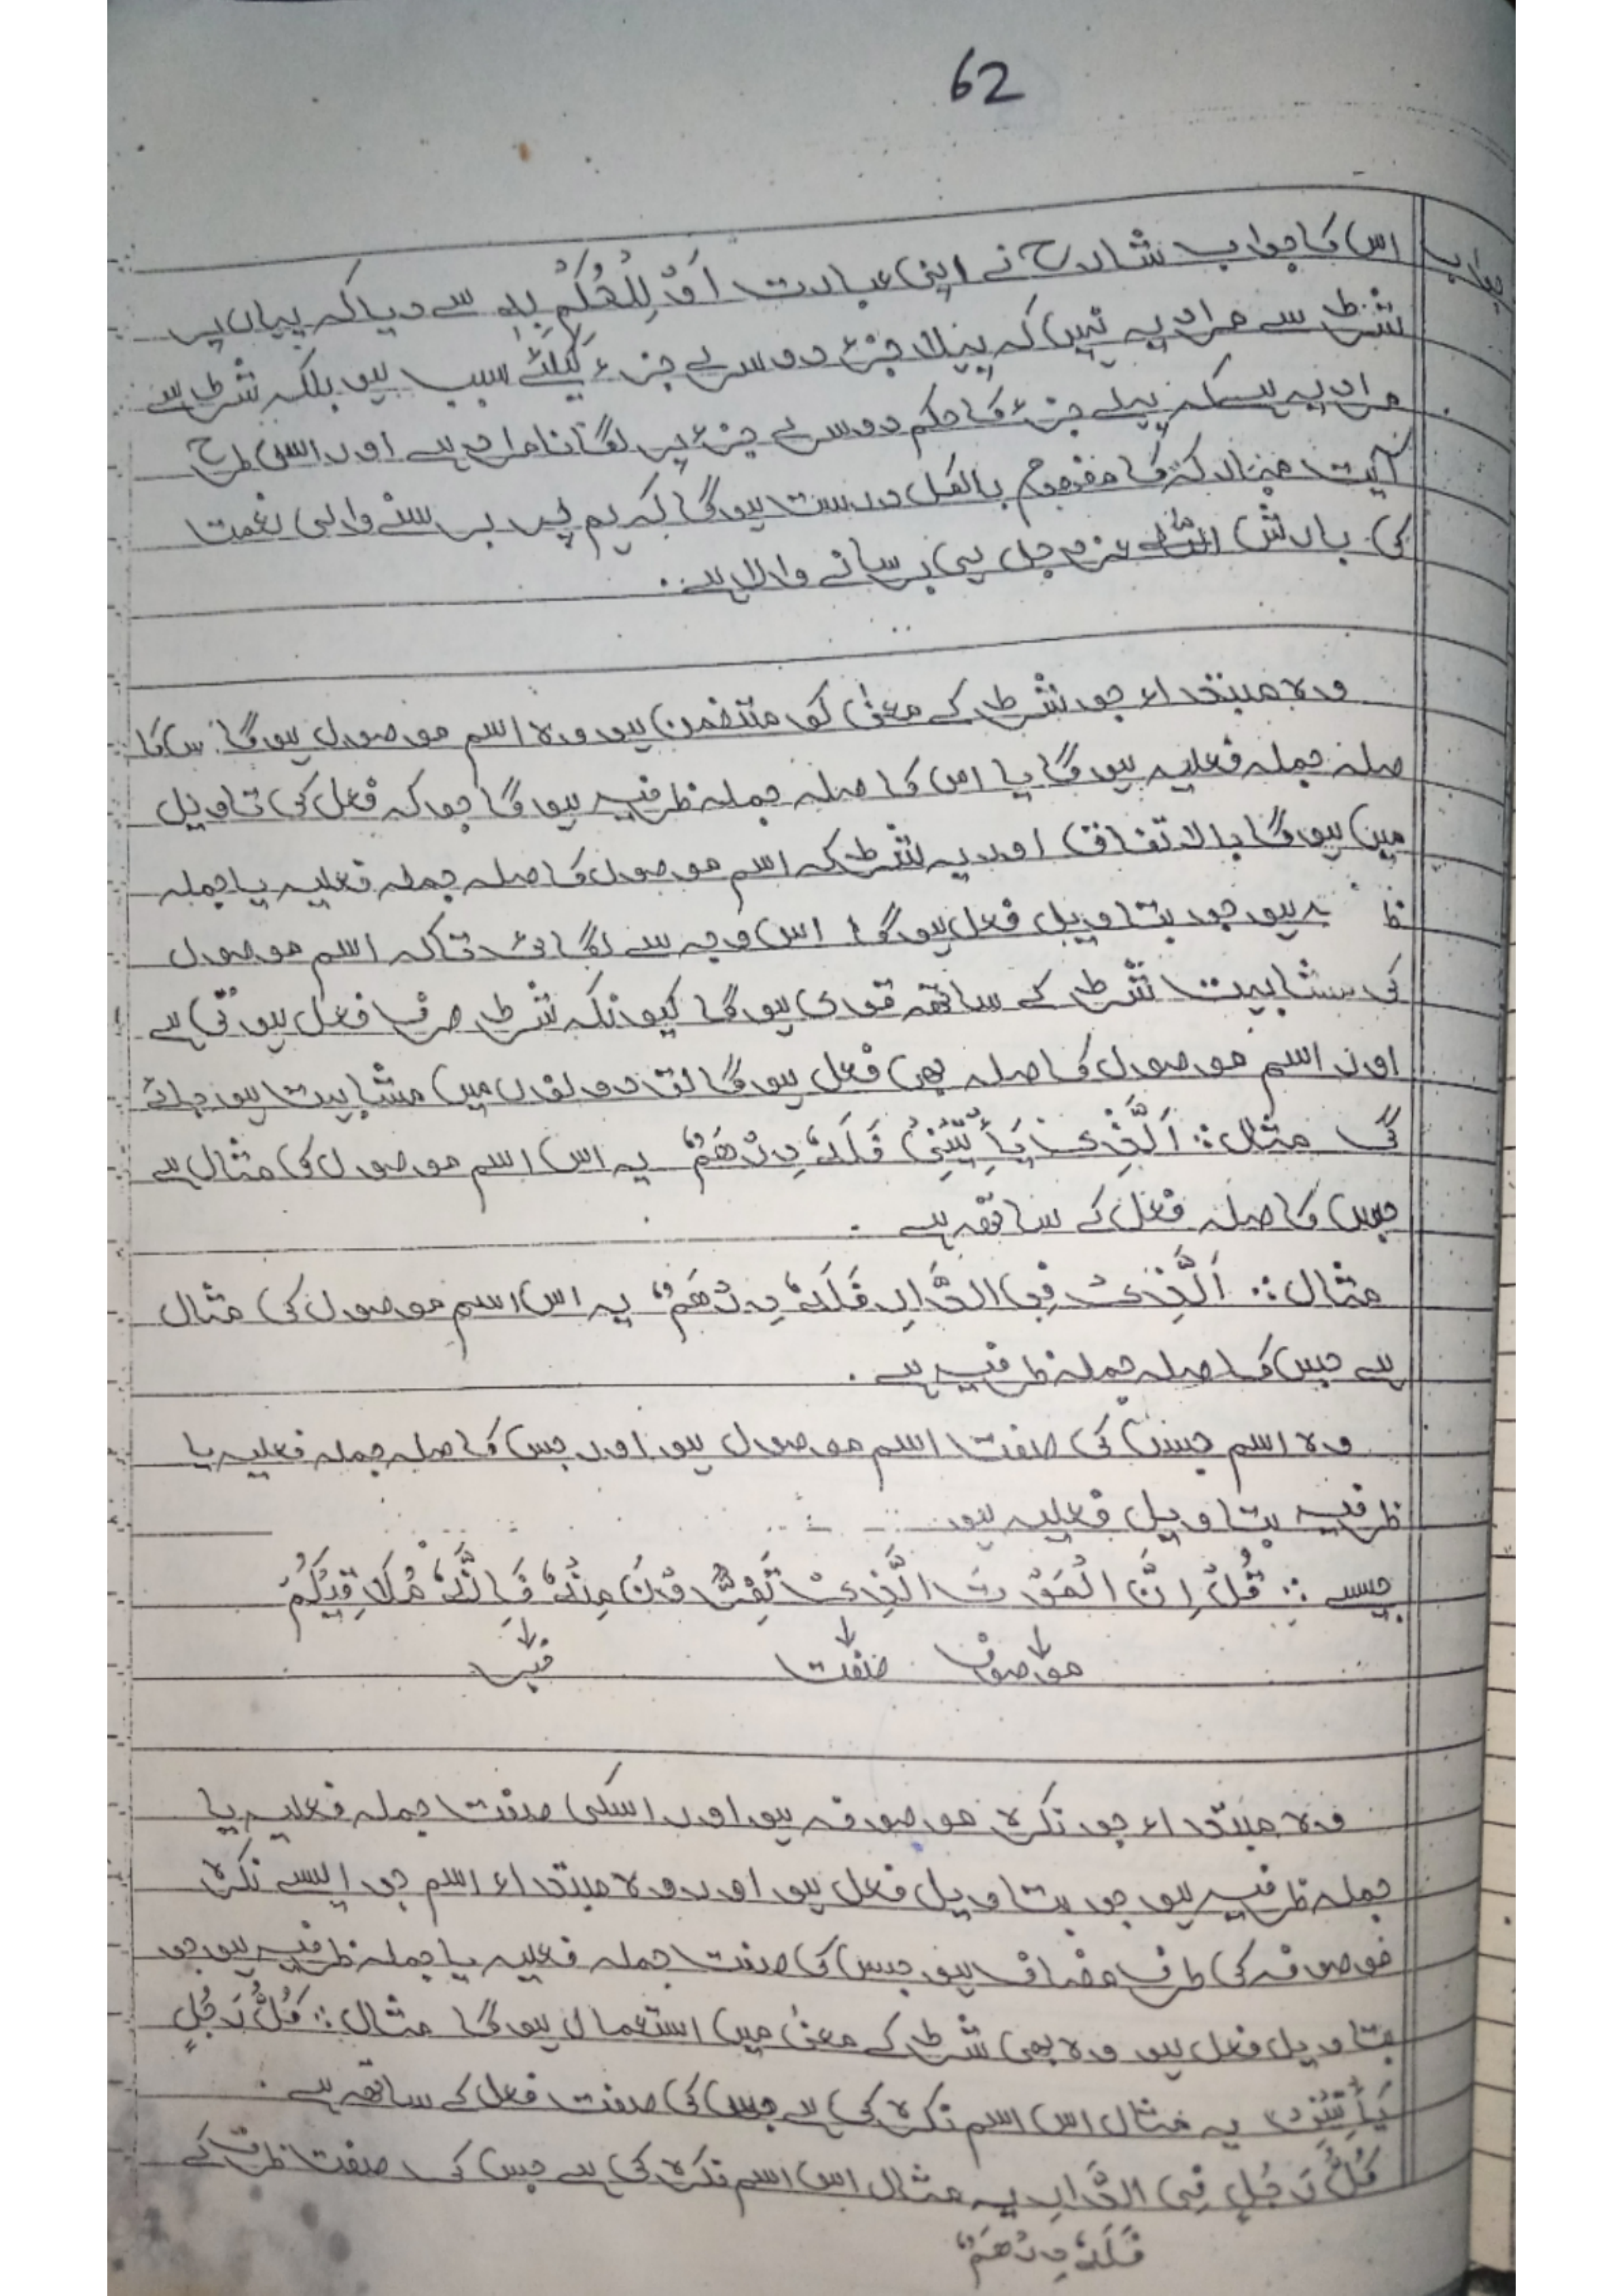 62
جواب
اس کا جواب شارح نے اپنی عبارت اَوْ لِلْحُکْمِ بِہٖ سے دیا کہ یہاں پر
شرط سے مراد یہ نہیں کہ پہلا جزء دوسرے جزء کیلئے سبب ہو بلکہ شرط سے
مراد یہ ہے کہ پہلے جزء کا حکم دوسرے جزء پر لگانا مراد ہے اور اسی طرح
آیت مبارکہ کا مفہوم بالکل درست ہوگا کہ ہم پر برسنے والی نعمت
کی بارش اللہ عزوجل ہی برسانے والا ہے۔
وہ مبتداء جو شرط کے معنیٰ کو متضمن ہو وہ اسم موصول ہوگا
صلہ جملہ فعلیہ ہوگا یا اس کا صلہ جملہ ظرفیہ ہوگا جو کہ فعل کی تاویل
میں ہوگا بالاتفاق اور یہ شرط کہ اسم موصول کا صلہ جملہ فعلیہ یا جملہ
ہو جو بتاویل فعل ہوگا اس وجہ سے لگائی تاکہ اسم موصول
کی مشابہت شرط کے ساتھ قوی ہوگا کیونکہ شرط صرف فعل ہوتی ہے
اور اسم موصول کا صلہ بھی فعل ہوگا تو دونوں میں مشابہت ہو جائے
گی مثال: اَلَّذِیْ یَأْتِیْنِیْ فَلَہٗ دِرْھَمٌ یہ اس اسم موصول کی مثال ہے
جس کا صلہ فعل کے ساتھ ہے۔
مثال: اَلَّذِیْ فِی الدَّارِ فَلَہٗ دِرْھَمٌ یہ اس اسم موصول کی مثال
ہے جس کا صلہ جملہ ظرفیہ ہے۔
وہ اسم جس کی صفت اسم موصول ہو اور جس کا صلہ جملہ فعلیہ یا
ظرفیہ بتاویل فعلیہ ہو
جیسے: قُلْ اِنَّ الْمَوْتَ الَّذِیْ تَفِرُّوْنَ مِنْہُ فَاِنَّہٗ مُلَاقِیْکُمْ
موصوف صفت خبر
وہ مبتداء جو نکرہ موصوفہ ہو اور اسکی صفت جملہ فعلیہ یا
جملہ ظرفیہ ہو جو بتاویل فعل ہو اور وہ مبتداء اسم جو ایسے نکرہ
موصوفہ کی طرف مضاف ہو جس کی صفت جملہ فعلیہ یا جملہ ظرفیہ ہو جو
بتاویل فعل ہو وہ بھی شرط کے معنیٰ میں استعمال ہوگا مثال: کُلُّ رَجُلٍ
یَأْتِیْنِیْ یہ مثال اس اسم نکرہ کی ہے جس کی صفت فعل کے ساتھ ہے۔
کُلُّ رَجُلٍ فِی الدَّارِ یہ مثال اس اسم نکرہ کی ہے جس کی صفت ظرف کے
فَلَہٗ دِرْھَمٌ